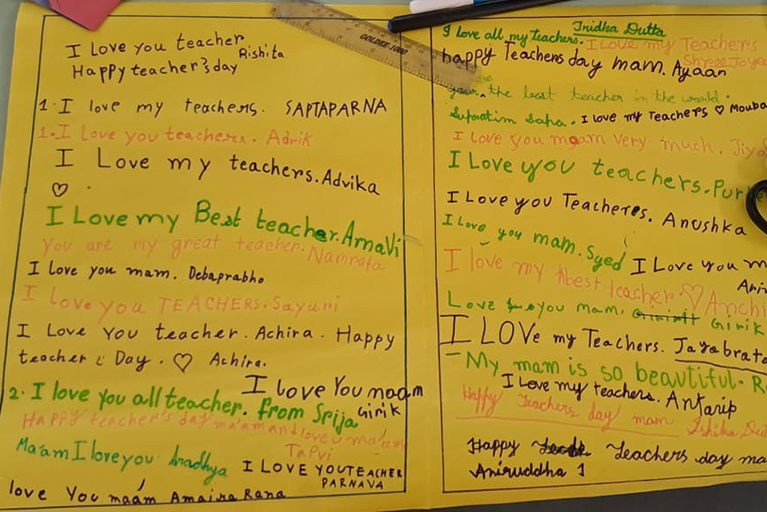 I love you teacher
Rishita
Happy teacher's day
1. I love my teachers. SAPTAPARNA
1. I love you teachers. Adrik
I Love my teachers. Advika
I Love my Best teacher. Arnavi
You are my great teacher. Namrata
I love you mam. Debaprabho
I love you TEACHERS. Sayuni
I Love You teacher. Achira. Happy
teacher's Day. ♡ Achira.
I love You maam
Girik
2. I love you all teacher. from Srija
Happy teacher's day ma'am and love u ma'am
TaPvi
Ma'am I love you Aradhya
I LOVE YOU TEACHER
PARNAVA
love You maám Amaira Rana
GOLDEX-1000
Tridha Dutta
I love all my teachers.
I Love my Teachers
happy Teachers day mam. Ayaan
your the best teacher in the world.
Supratim Saha. I love my Teachers ♡
I love you maam very much.
I Love you teachers.
I Love you Teacheres. Anushka
I Love you mam. Syed
I Love you
I love my best teacher ♡
Love you mam. Girik
I LOVe my Teachers. Jayabrata
- My mam is so beautiful.
I Love my teachers. Antarip
Happy Teachers day mam Ishika
Happy Teachers day
Aniruddha 1